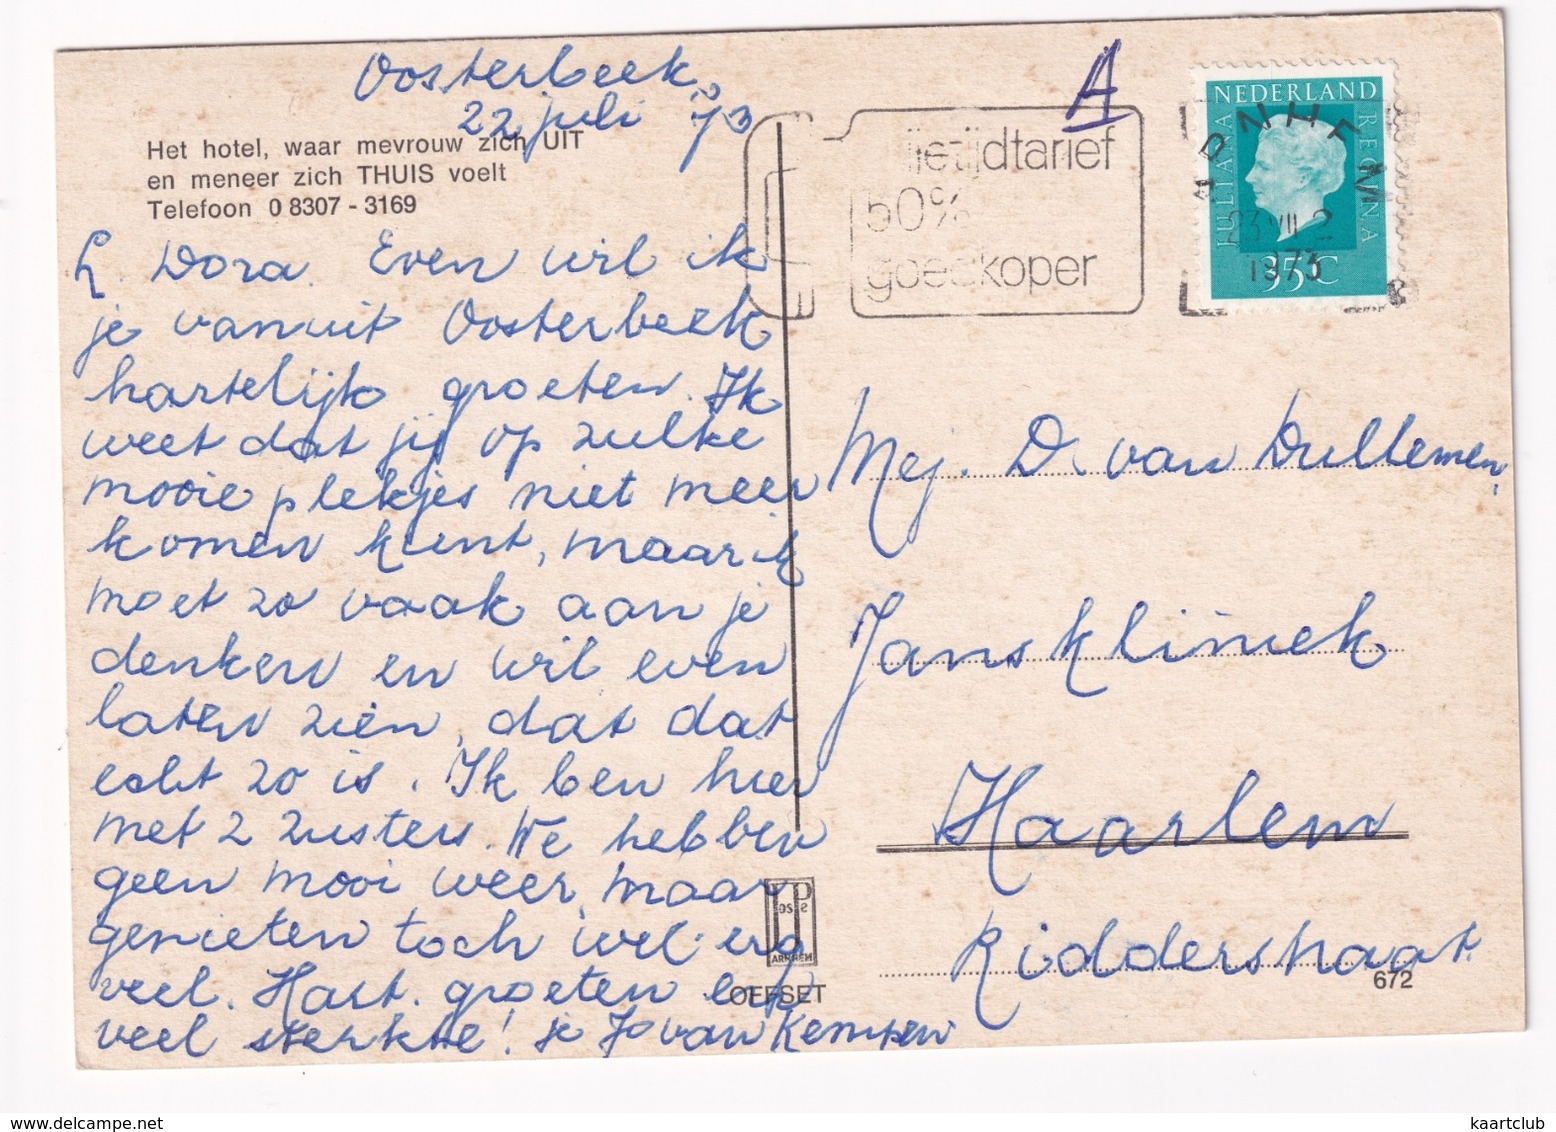 Oosterbeek,
22 juli '73
Het hotel, waar mevrouw zich UIT
en meneer zich THUIS voelt
Telefoon 0 8307 - 3169
L. Dora. Even wil ik
je vanuit Oosterbeek
hartelijk groeten. Ik
weet dat jij op zulke
mooie plekjes niet meer
komen kunt, maar ik
moet zo vaak aan je
denken en wil even
laten zien, dat dat
echt zo is. Ik ben hier
met 2 zusters. We hebben
geen mooi weer, maar
genieten toch wel erg
veel. Hart. groeten en
veel sterkte! je Jo van Kempen
A
tijdtarief
50%
goedkoper
NEDERLAND
JULIANA REGINA
35 C
ARNHEM
23 VII 2
1973
Mej. D. van Dullemen,
Janskliniek
Haarlem
Ridderstraat
Poste
ARNHEM
OFFSET
672
kaartclub